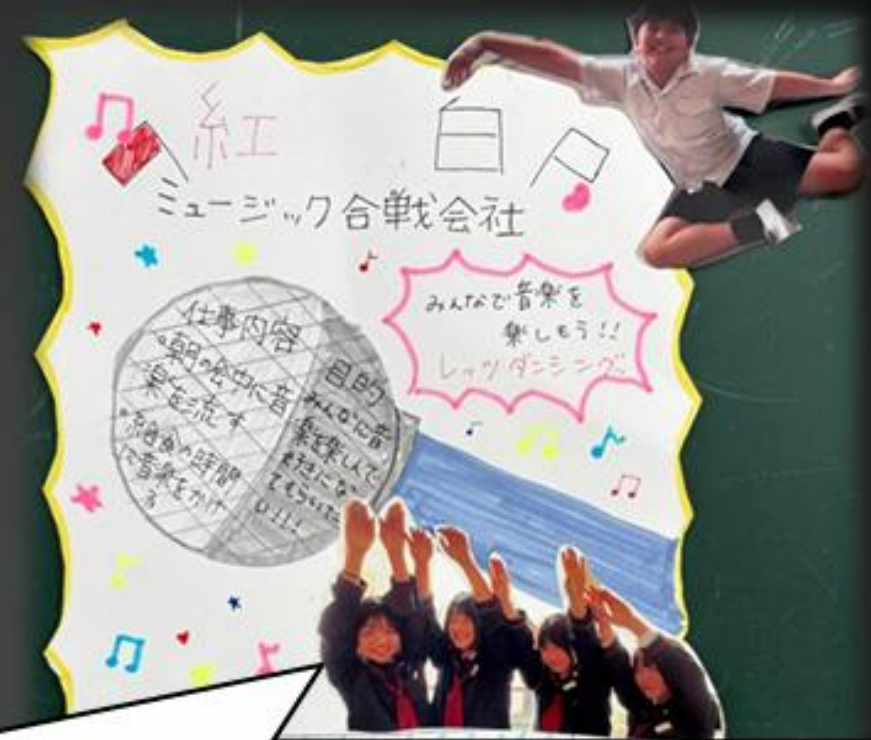 紅 白
ミュージック合戦会社
みんなで音楽を
楽しもう!!
レッツダンシング!!
仕事内容
・朝の会中に音
楽を流す
・給食の時間
に音楽をかけ
る
目的
みんなに音
楽を楽しんで
好きになっ
てもらいた
い!!!